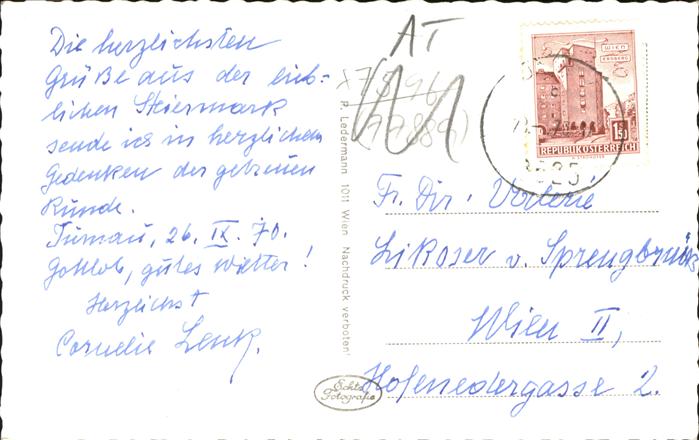 Die herzlichsten
Grüße aus der lieb-
lichen Steiermark
sende ich in herzlichem
Gedenken der getreuen
Runde.
Turnau, 26. IX. 70.
Gottlob, gutes Wetter!
Herzlichst
Cornelia Lenk.
P. Ledermann 1011 Wien Nachdruck verboten
Echte
Fotografie
AT
WIEN
ERDBERG
1.50
REPUBLIK ÖSTERREICH
8625
Fr. Dir. Valerie
Likoser v. Sprengbrück
Wien II,
Hofenedergasse 2.